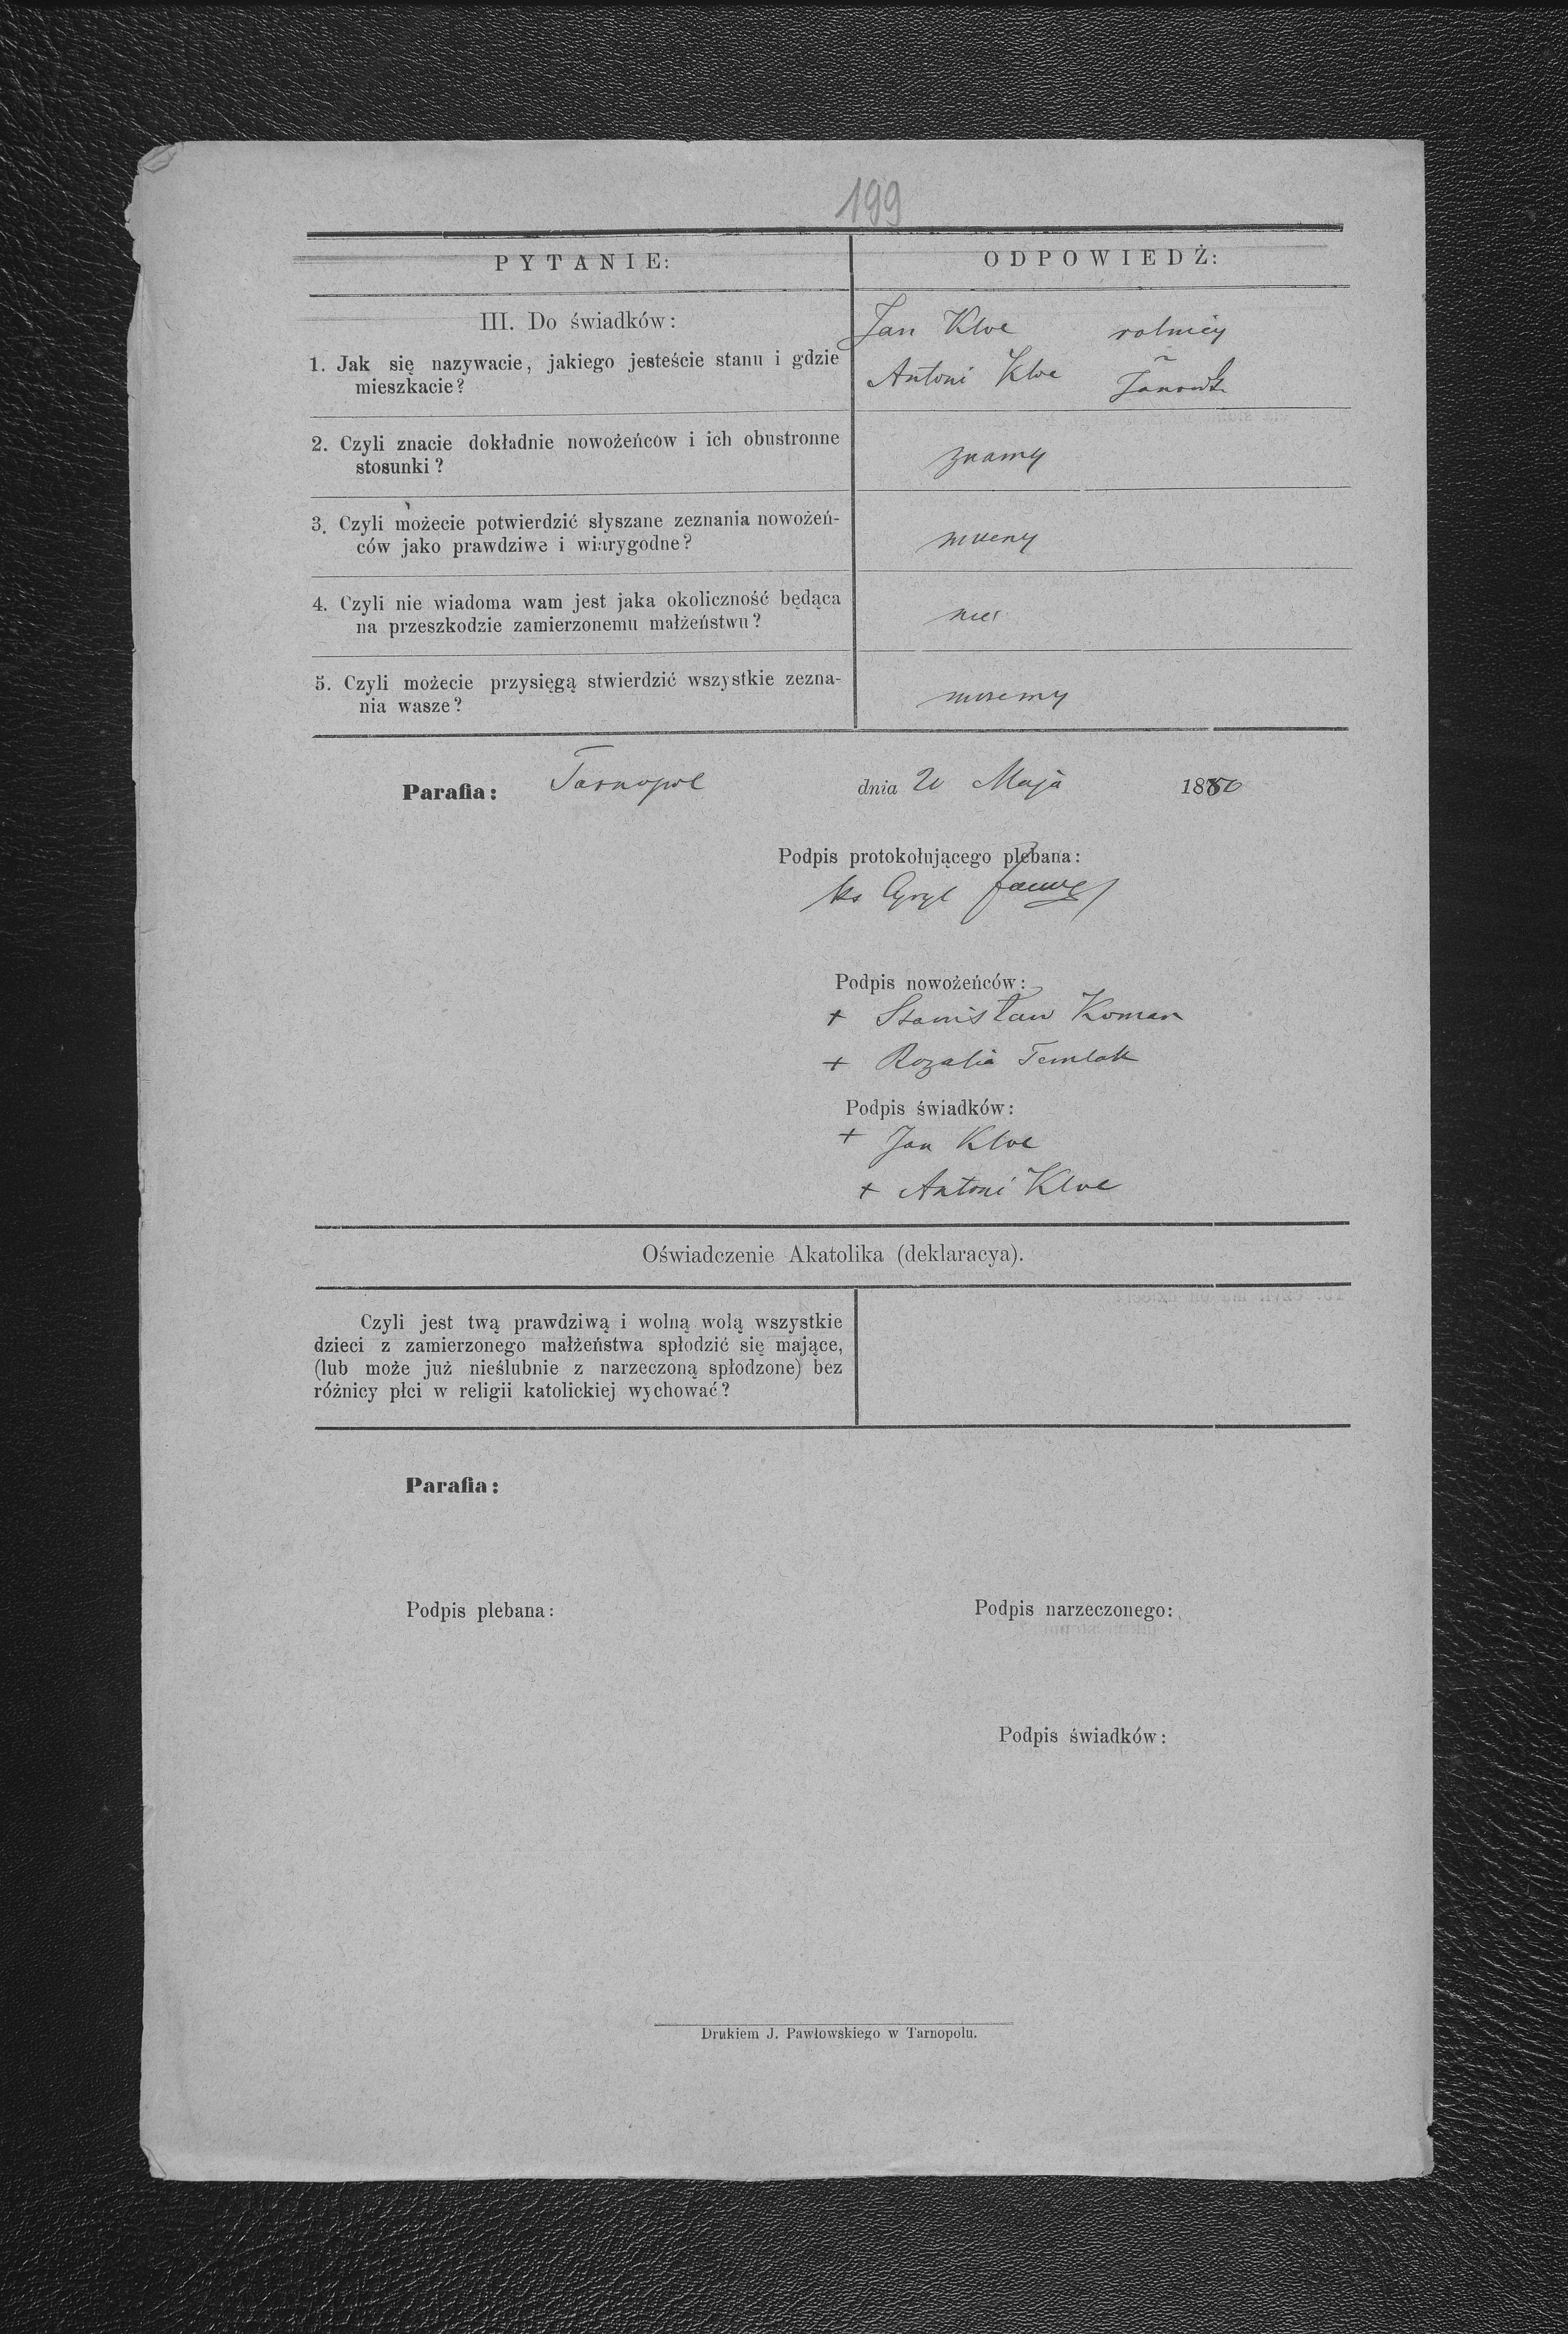 199
PYTANIE:
ODPOWIEDŹ:
III. Do świadków:
1. Jak się nazywacie, jakiego jesteście stanu i gdzie
mieszkacie?
Jan Kloc rolnicy
Antoni Kloc
2. Czyli znacie dokładnie nowożeńców i ich obustronne
stosunki?
znamy
3. Czyli możecie potwierdzić słyszane zeznania nowożeń-
ców jako prawdziwe i wiarygodne?
4. Czyli nie wiadoma wam jest jaka okoliczność będąca
na przeszkodzie zamierzonemu małżeństwu?
nie
5. Czyli możecie przysięgą stwierdzić wszystkie zezna-
nia wasze?
mozemy
Parafia: Tarnopol dnia 20 Maja 18
Podpis protokołującego plebana:
ks Cyryl
Podpis nowożeńców:
+ Stanisław Koman
+ Rozalia Temlak
Podpis świadków:
+ Jan Kloc
+ Antoni Kloc
Oświadczenie Akatolika (deklaracya).
Czyli jest twą prawdziwą i wolną wolą wszystkie
dzieci z zamierzonego małżeństwa spłodzić się mające,
(lub może już nieślubnie z narzeczoną spłodzone) bez
różnicy płci w religii katolickiej wychować?
Parafia:
Podpis plebana:
Podpis narzeczonego:
Podpis świadków:
Drukiem J. Pawłowskiego w Tarnopolu.